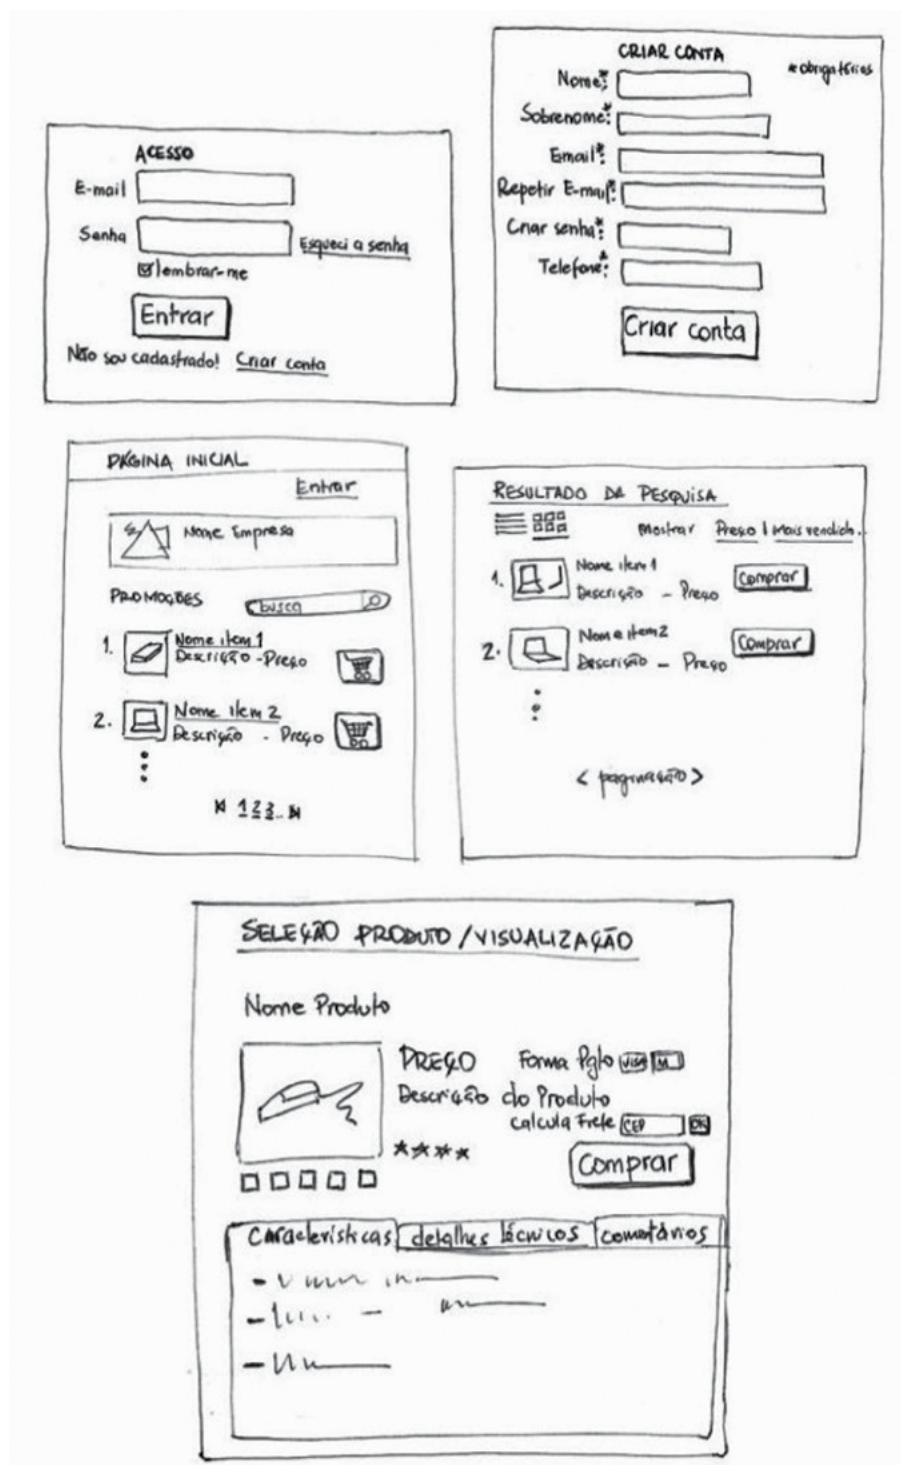 ACESSO
E-mail
Senha
Esqueci a senha
lembrar-me
Entrar
Não sou cadastrado! Criar conta
CRIAR CONTA
*obrigatórios
Nome*:
Sobrenome*:
Email*:
Repetir E-mail*:
Criar senha*:
Telefone*:
Criar conta
PÁGINA INICIAL
Entrar
Nome Empresa
PROMOÇÕES
busca
1. Nome item 1
Descrição - Preço
2. Nome item 2
Descrição - Preço
1 2 3...
RESULTADO DA PESQUISA
mostrar Preço | Mais vendidos
1. Nome item 1
Descrição - Preço
Comprar
2. Nome item 2
Descrição - Preço
Comprar
< paginação >
SELEÇÃO PRODUTO / VISUALIZAÇÃO
Nome Produto
PREÇO
Forma Pgto VISA M
Descrição do Produto
calcula Frete CEP OK
****
Comprar
Características
detalhes técnicos
comentários